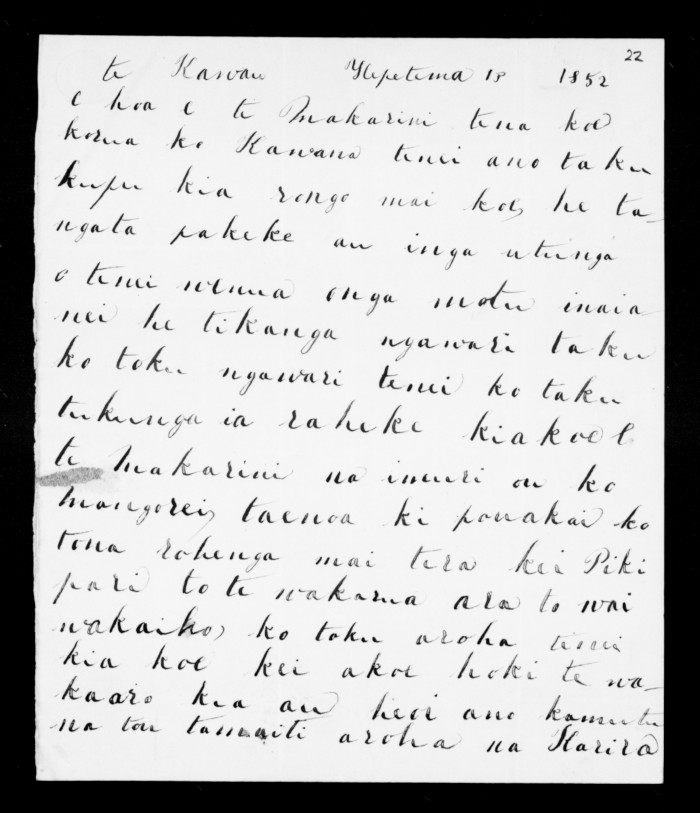 22
te Kawau Hepetema 13 1852
E hoa e te Makarini tena koe
korua ko Kawana tenei ano taku
kupu kia rongo mai koe, he ta-
ngata pakeke au i nga utunga
o tenei wenua o nga motu inaia
nei he tikanga ngawari taku
ko toku ngawari tenei ko taku
tukunga ia raheke kia koe E
te Makarini na i muri ou ko
mangorei, taenoa ki pouakai ko
tona rohenga mai tera kei Piki
pari to te wakarua ara to wai
wakaiho, ko toku aroha tenei
kia koe kei akoe hoki te wa-
kaaro kia au heoi ano kamutu
na tou tamaiti aroha na Karira